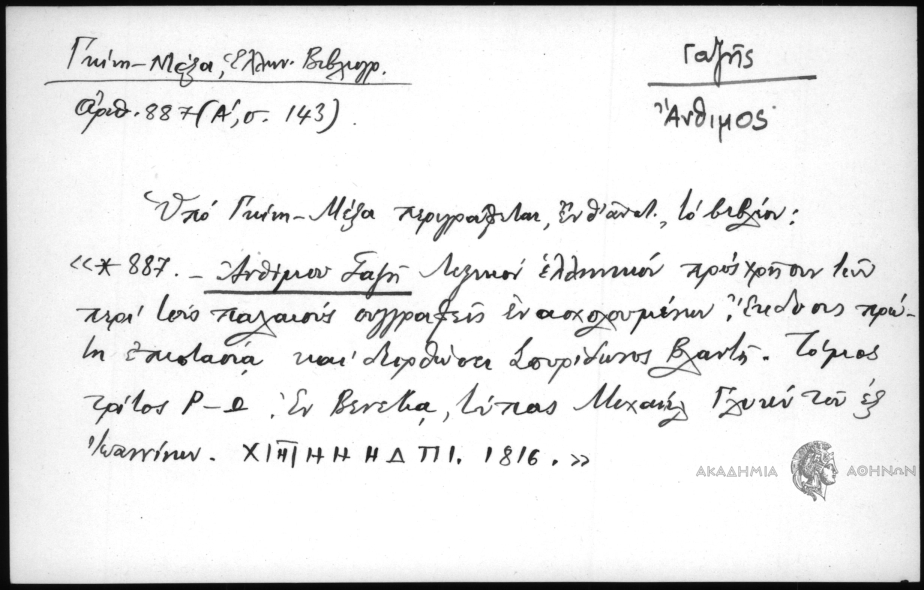 Γκίνη-Μέξα, Ἑλλην. Βιβλιογρ.
ἀριθ. 887 (Α΄, σ. 143).
Γαζῆς
Ἄνθιμος
Ὑπό Γκίνη-Μέξα περιγράφεται, ἐν θ' ἀνατ., τό βιβλίον:
«*887. – Ἀνθίμου Γαζῆ Λεξικόν ἑλληνικόν πρός χρῆσιν τῶν
περί τούς παλαιούς συγγραφεῖς ἐνασχολουμένων. Ἔκδοσις πρώ-
τη ἐπιστασίᾳ καί διορθώσει Σπυρίδωνος Βλαντῆ. Τόμος
τρίτος Ρ-Ω. Ἐν Βενετίᾳ, τύποις Μιχαήλ Γλυκύ τοῦ ἐξ
Ἰωαννίνων. ΧΙΠΙΗΗΗΔΠΙ. 1816.»
ΑΚΑΔΗΜΙΑ ΑΘΗΝΩΝ